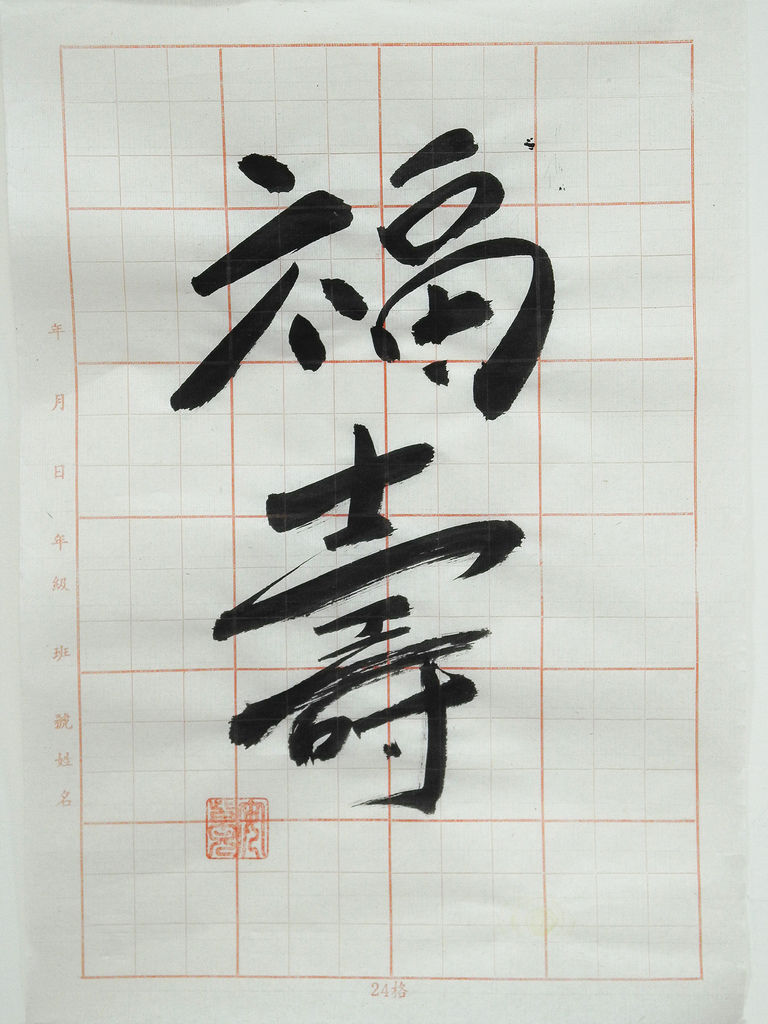 福
壽
年 月 日 年級 班 號 姓名
24格